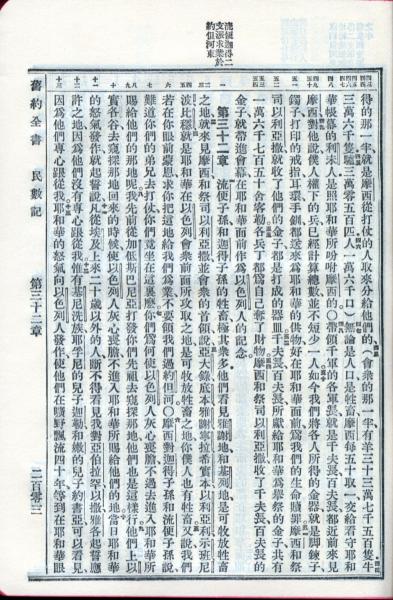 流便迦得二
支派求業於
約但河東
得的那一半就是摩西從打仗的人取來分給他們的會衆的那一半有羊三十三萬七千五百隻牛
三萬六千隻驢三萬零五百四人一萬六千口）無論是人口是牲畜摩西每五十取一交給看守耶和
華帳幕的利未人是照耶和華所吩咐摩西的○帶領千軍的各軍長就是千夫長百夫長都近前來見
摩西對他說僕人權下的兵已經計算總數並不短少一人如今我們將各人所得的金器就是脚鍊子
鐲子打印的戒指耳環手釧都送來爲耶和華的供物好在耶和華面前爲我們的生命贖罪摩西和祭
司以利亞撒就收了他們的金子都是打成的器皿千夫長百夫長所獻給耶和華爲舉祭的金子共有
一萬六千七百五十舍客勒各兵丁都爲自己奪了財物摩西和祭司以利亞撒收了千夫長百夫長的
金子就帶進會幕在耶和華面前作爲以色列人的記念
第三十二章 流便子孫和迦得子孫的牲畜極其衆多他們看見雅謝地和基列地是可牧放牲畜
之地就來見摩西和祭司以利亞撒並會衆的首領說亞大錄底本雅謝寧拉希實本以利亞利示班尼
波比穩就是耶和華在以色列會衆前面所攻取之地是可牧放牲畜之地你僕人也有牲畜又說我們
若在你眼前蒙恩求你把這地給我們爲業不要領我們過約但河○摩西對迦得子孫和流便子孫說
難道你們的弟兄去打仗你們竟坐在這裏麽你們爲何使以色列人灰心喪膽不過去進入耶和華所
賜給他們的那地呢我先前從加低斯巴尼亞打發你們先祖去窺探那地他們也是這樣行他們上以
實各谷去窺探那地回來的時候使以色列人灰心喪膽不進入耶和華所賜給他們的地當日耶和華
的怒氣發作就起誓說凡從埃及上來二十歲以外的人斷不得看見我對亞伯拉罕以撒雅各起誓應
許之地因爲他們沒有專心跟從我惟有基尼洗族耶孚尼的兒子迦勒和嫩的兒子約書亞可以看見
因爲他們專心跟從我耶和華的怒氣向以色列人發作使他們在曠野飄流四十年等到在耶和華眼
舊約全書 民數記 第三十二章 二百零三